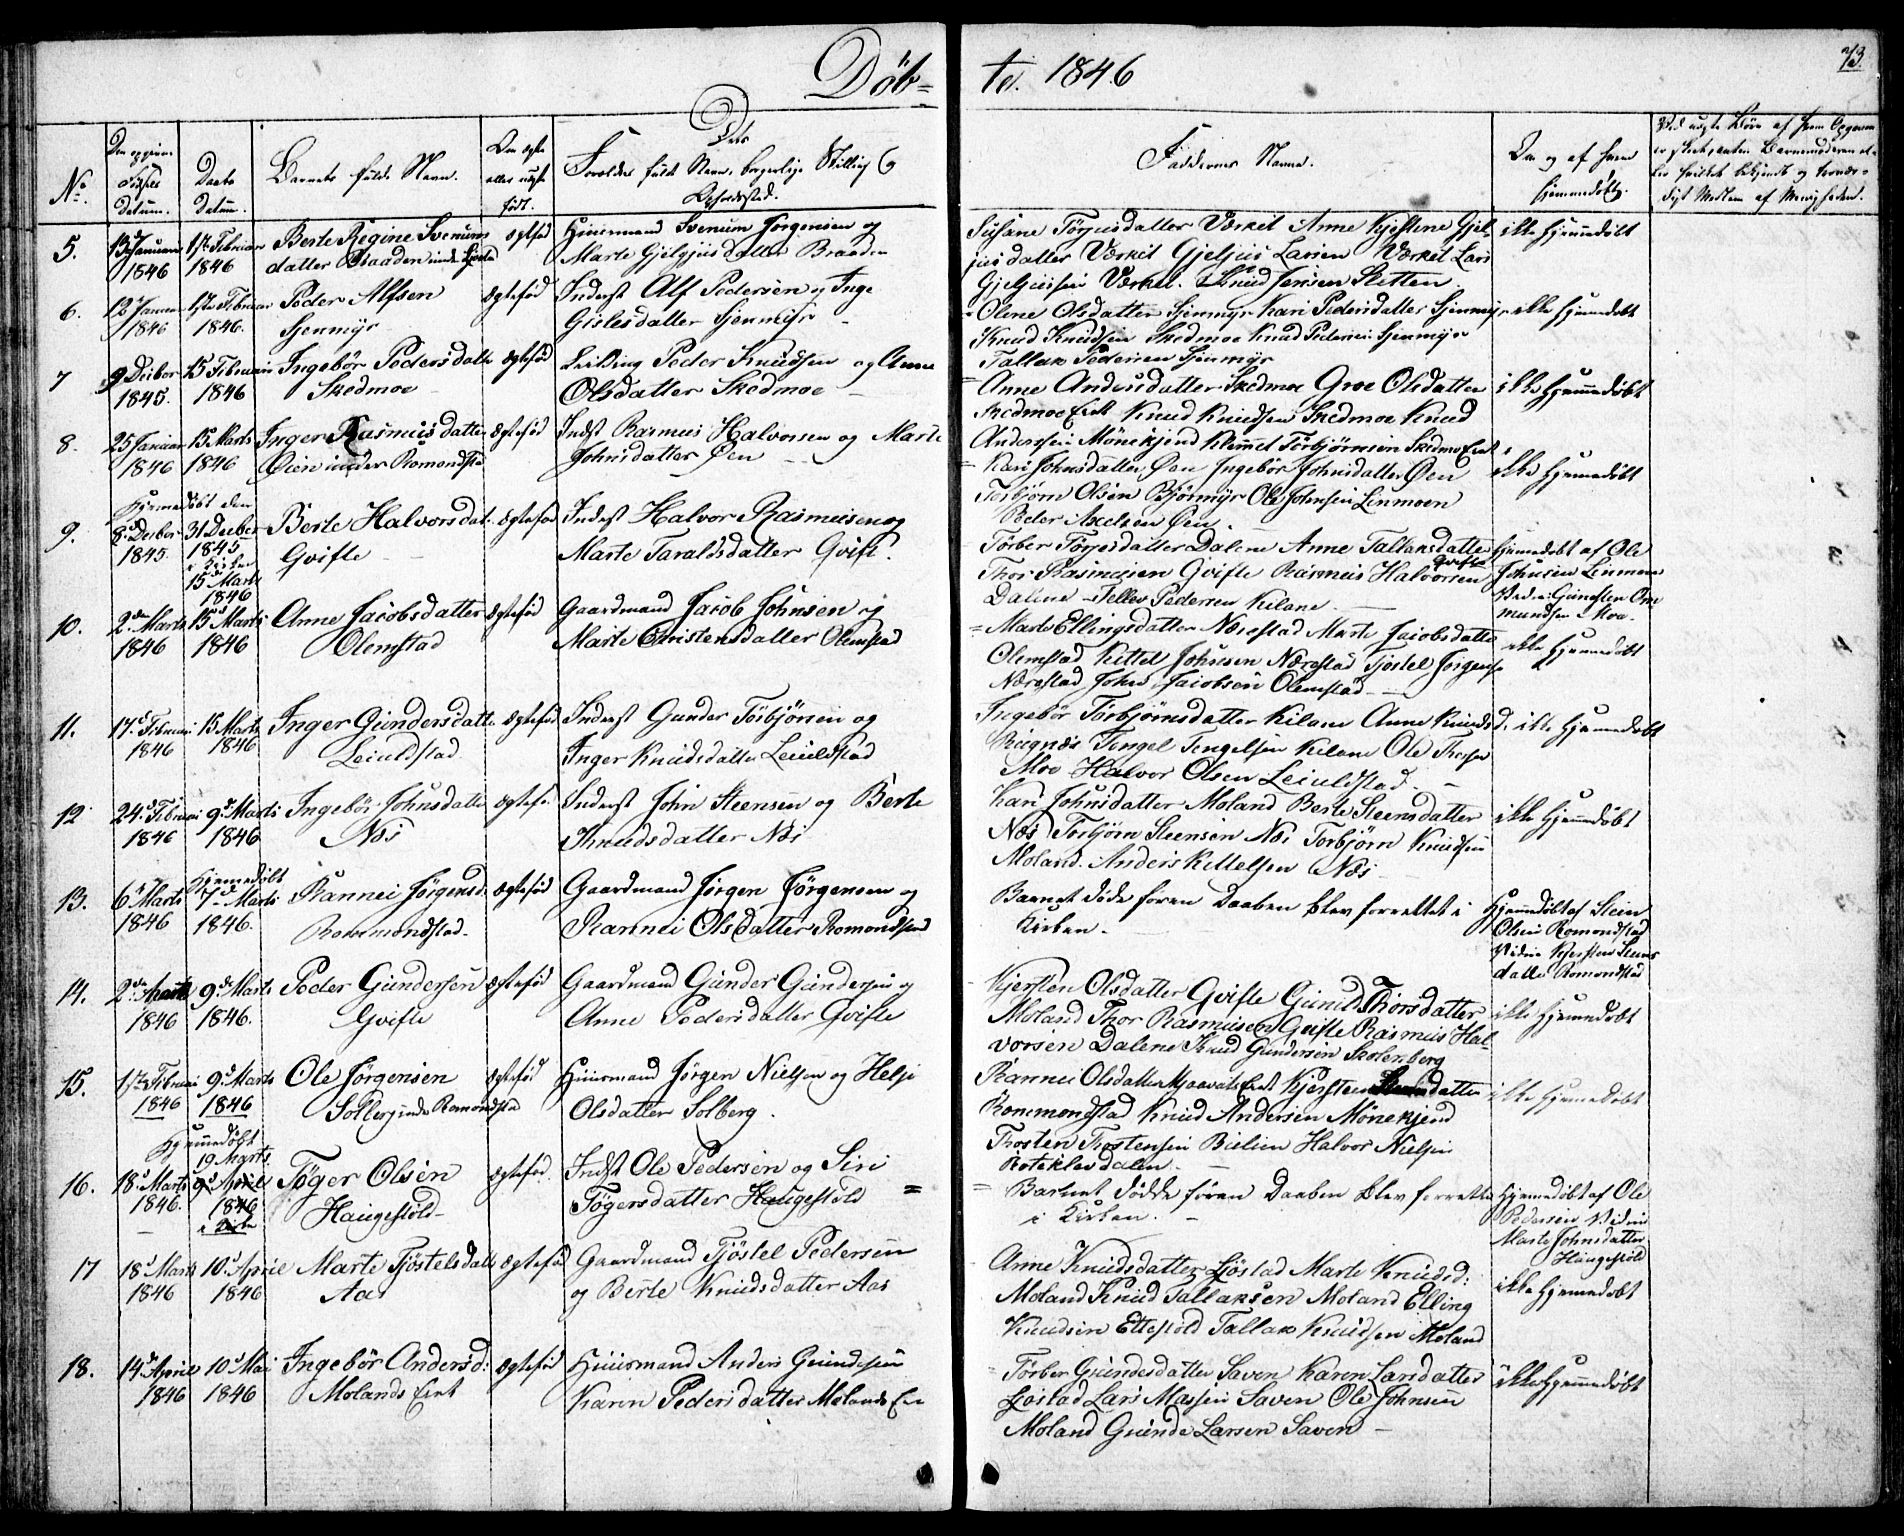 Døb= te. 1846
73.
No.
Den opgivne Fødsels Datum.
Daabs Datum.
Barnets fulde Navn.
Om ægte eller uægte født.
Dets Forældres fulde Navn, borgerlige Stilling og Opholdssted.
Faddernes Navne.
Om og af hvem hjemmedøbt.
5.
13 Januar 1846
1ste Februar 1846
Berte Regine Svenums
datter Braaden under
ægtefød
Huusmand Svenum Jørgensen og
Marte Gjelgjusdatter Braaden
Susane Tørjusdatter Værket Anne Kjestene Gjel-
jusdatter Værket Gjeljus Larsen Værket Lars
Gjeljusen Værket. Knud Jensen Sletten
ikke hjemmedøbt
6.
12 Januar 1846
1ste Februar 1846.
Peder Alfsen
Sjenmyr
ægtefød
Inderst Alf Pedersen og Inge
Gislesdatter Sjenmyr
Olene Olsdatter Sjenmyr Kari Pedersdatter Sjenmyr
Knud Knudsen Skedmoe Knud Pedersen Sjenmyr
Tallak Pedersen Sjenmyr
ikke hjemmedøbt
7
9 Decbr 1845.
15 Februar 1846
Ingebør Pedersdatter
Skedmoe
ægtefød
Peder Knudsen og Anne
Olsdatter Skedmoe
Anne Andersdatter Skedmoe Groe Olsdatter
Skedmoe Eiet Knud Knudsen Skedmoe Knud
Andersen Mönekjend Klemmet Torbjørnsen Skedmo Eiet
ikke hjemmedøbt
8.
25 Januar 1846
15 Marts 1846
Inger Rasmusdatter
Øien under Romondstad
ægtefød
Indst Rasmus Halvorsen og Marte
Johnsdatter Øen
Kari Johnsdatter Øen Ingebør Johnsdatter Øen
Torbjørn Olsen Bjørmyr Ole Johnsen Linmoen
Peder Axelsen Øen
ikke hjemmedøbt
9.
Hjemmedøbt den
8 Decbr 1845.
31 Decber 1845
i Kirken
15 Marts 1846
Berte Halvorsdat.
Gvifte
ægtefød
Inderst Halvor Rasmusen og
Marte Taraldsdatter Gvift.
Tørber Tørjesdatter Dalene Anne Tallaksdatter Gvifte
Thor Rasmusen Gvifte Rasmus Halvorsen
Dalene Tellev Pedersen Kilane
hjemmedøbt af Ole
Johnsen Linmoen
10.
2den Marts 1846
15 Marts 1846
Anne Jacobsdatter
Olemstad
ægtefød
Gaardmand Jacob Johnsen og
Marte Christensdatter Olemstad
Marte Ellingsdatter Nærestad Marte Jacobsdatter
Olemstad Kittel Johnsen Nærestad Tjøstel Jørgens.
Nærestad John Jacobsen Olemstad
ikke hjemmedøbt
11.
17 Februar 1846
15 Marts 1846
Inger Gundersdatter
Leiuldstad
ægtefød
Inderst Gunder Torbjørsen og
Inger Knudsdatter Leiuldstad
Ingebør Torbjørnsdatter Kilane Anne Knudsd.
Rugnæs Tengel Tengelsen Kilane Ole
Moe Halvor Olsen Leiuldstad.
ikke hjemmedøbt
12
24 Februar 1846
9 Marts 1846
Ingebør Johnsdatter
Næs
ægtefø.
Inderst John Steensen og Berte
Knudsdatter Næs
Kari Johnsdatter Moland Berte Steensdatter
Næs Torbjørn Steensen Næs Torbjørn Knudsen
Moland. Anders Kittelsen Næs
ikke hjemmedøbt
13.
6 Marts 1846
Hjemmedøbt
7 Marts 1846.
Rannei Jørgensd.
Rommondstad.
ægtefød
Gaardmand Jørgen Jørgensen og
Rannei Olsdatter Romondstad
Barnet døde føren Daaben blev forrettet i
Kirken.
Hjemmedøbt af Stein
Olsen Romondstad
Vidne Kjersten Steens
datter Romondstad
14.
2den Marts 1846
9 Marts 1846.
Peder Gundersen
Gvifte
ægtefød
Gaardmand Gunder Gundersen og
Anne Pedersdatter Gvifte
Kjersten Olsdatter Gvifte Gunild Thorsdatter
Moland Thor Rasmusen Gvifte Rasmus Hal-
vorsen Dalene Knud Gundersen Skolenberg
ikke hjemmedøbt
15.
17 Februar 1846
9 Marts 1846
Ole Jørgensen
Solberg under Romondstad
ægtefød
Huusmand Jørgen Nielsen og Helje
Olsdatter Solberg.
Rannei Olsdatter Kjersten Steensdatter
Rommondstad Knud Andersen Mönekjend
Thosten Thostensen Halvor Nielsen
ikke hjemmedøbt
16.
18 Marts 1846.
Hjemmedøbt
19 Marts.
9 April 1846
i Kirke
Tøger Olsen
Haugestöld
ægtefød.
Indst Ole Pedersen og Siri
Tøgersdatter Haugestöld =
Barnet dødde føren Daaben blev forrettet
i Kirken.
Hjemmedøbt af Ole
Pedersen Vidne
Marte Johnsdatter
Haugestöld
17
18 Marts 1846
10 April 1846
Marte Tjøstelsdatt
Aas
ægtefød
Gaardmand Tjøstel Pedersen
og Berte Knudsdatter Aas
Anne Knudsdatter Ljøstad Marte Knudsd:
Moland Knud Tallaksen Moland Elling
Knudsen Ettestöld Tallak Knudsen Moland
ikke hjemmedøbt
18.
14 April 1846
10 Mai 1846
Ingebör Andersd:
Molands Eiet
ægtefød
Huusmand Anders Gundesen
Karen Pedersdatter Molands Eie
Tørber Gundesdatter Saven Karen Larsdatter
Ljøstad Lars Massen Saven Ole Johnsen
Moland Gunde Larsen Saven
ikke hjemmedøbt